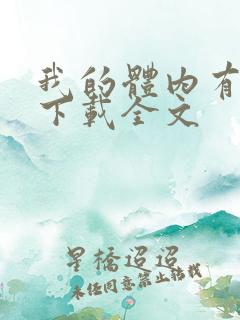 我的體內有
下載全文
星橋迢迢
未经同意禁止转载